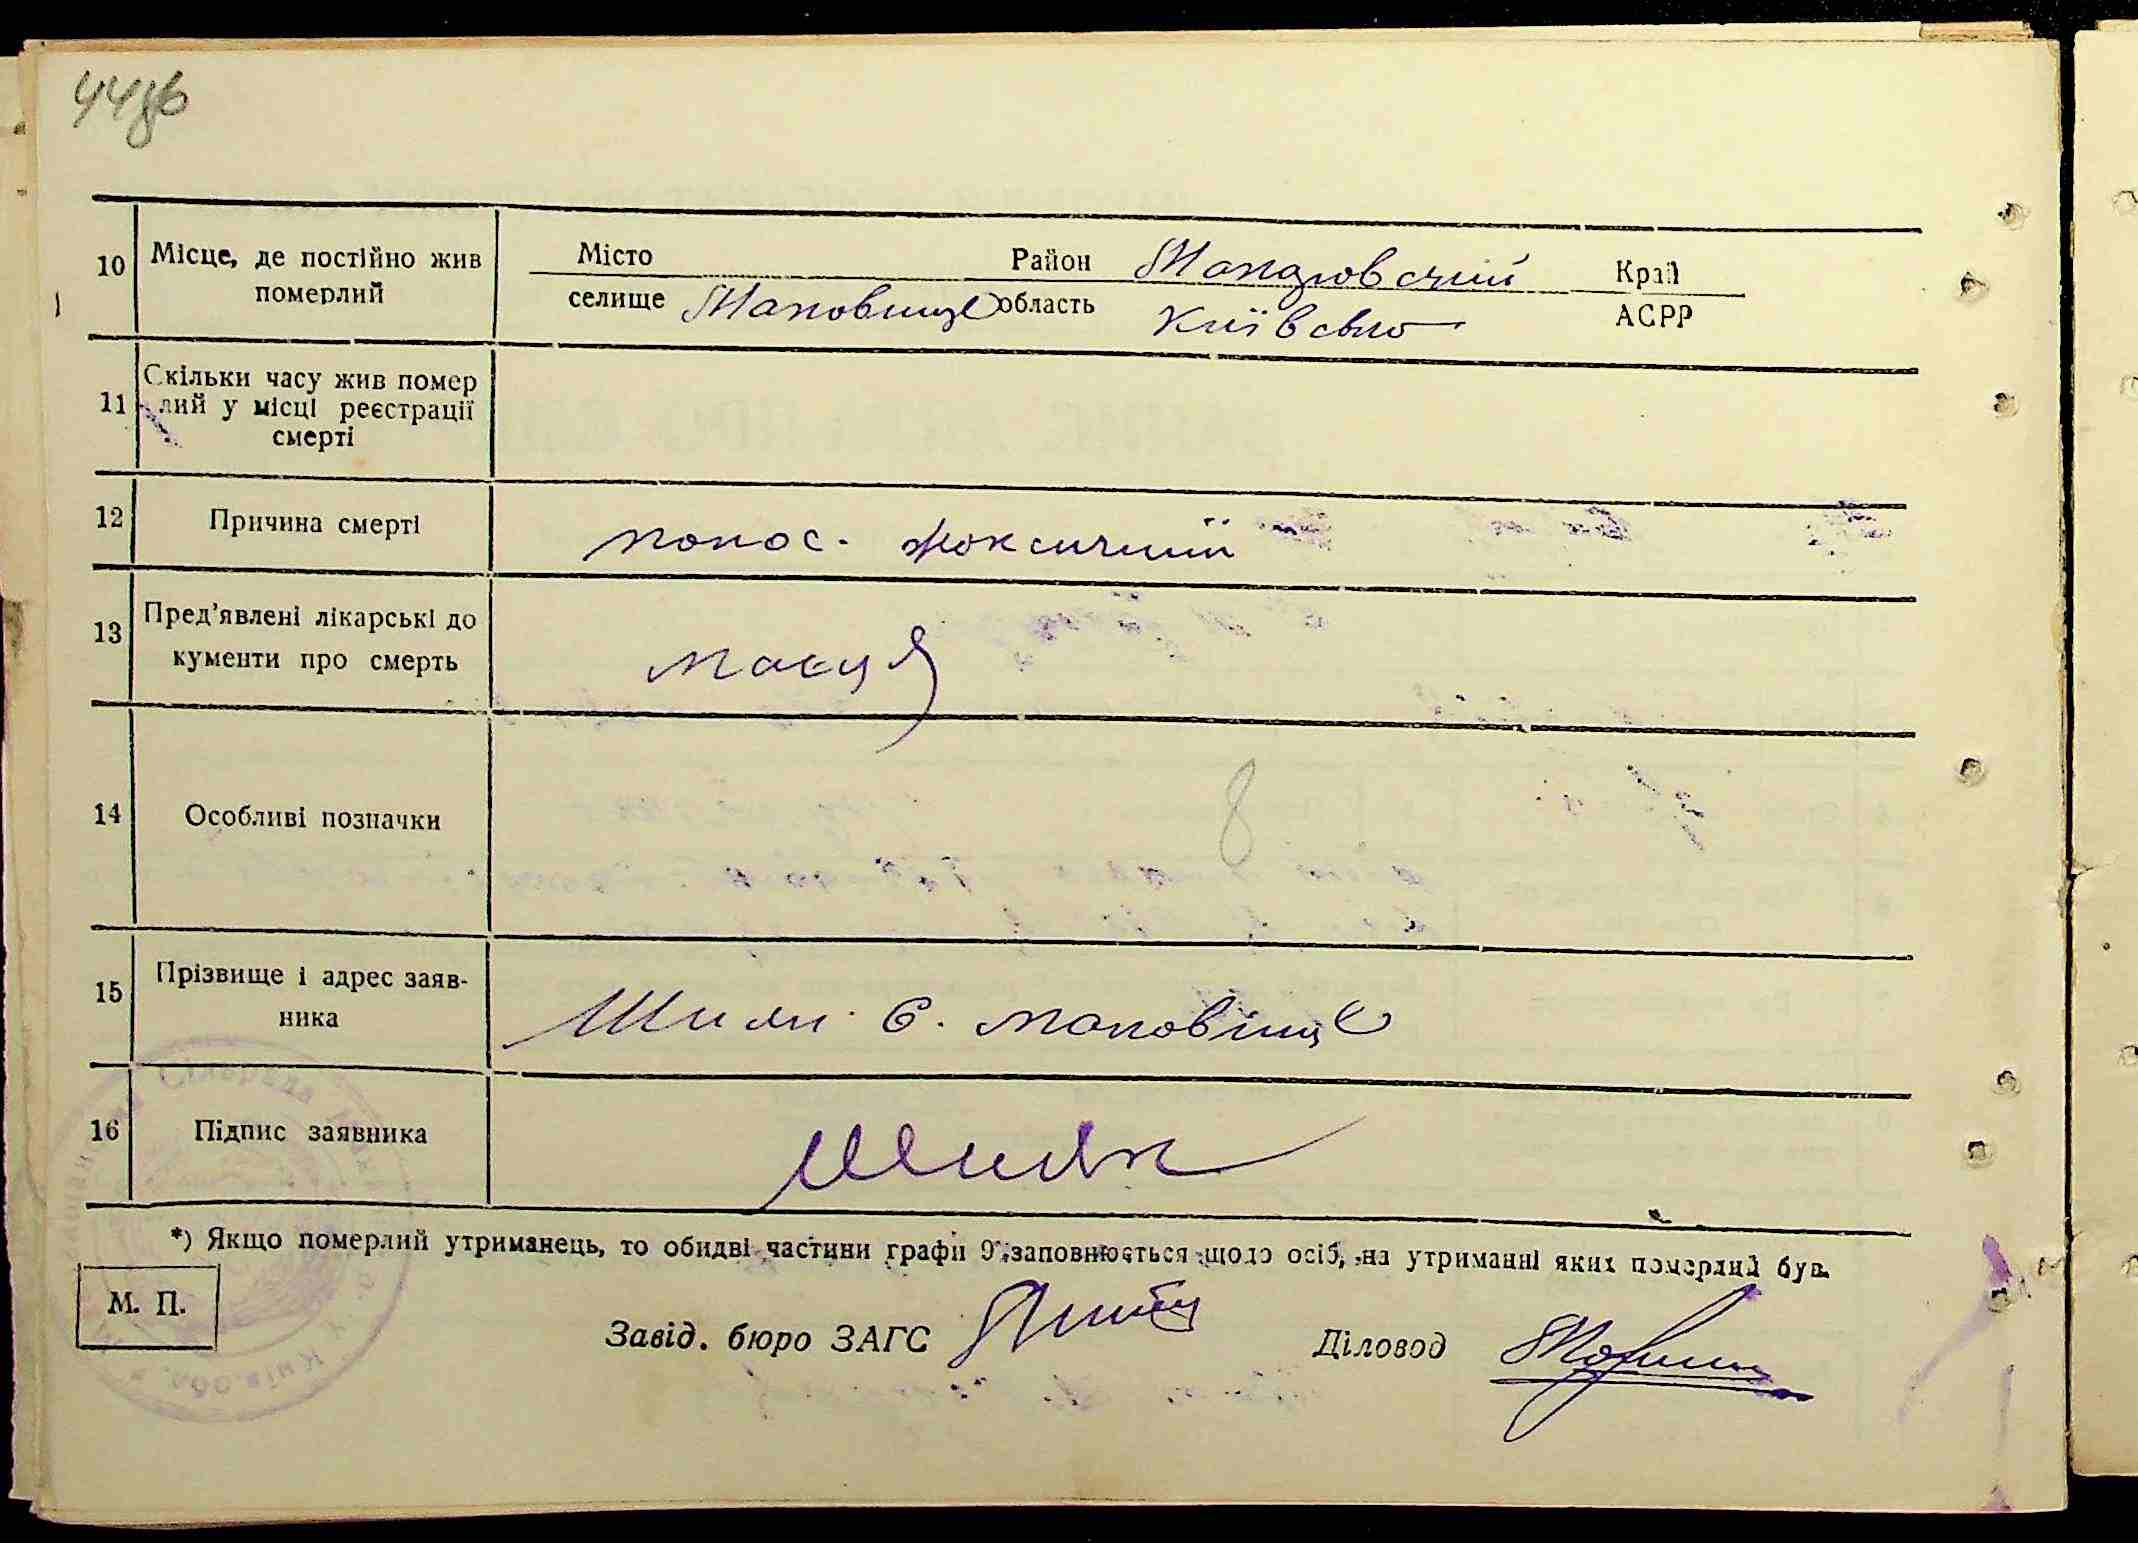 44зв
10 Місце, де постійно жив померлий
Місто Район Макаровський Край
селище Маковище область Київсько АСРР
11 Скільки часу жив помер
лий у місці реєстрації
смерті
12 Причина смерті понос. токсичний
13 Пред'явлені лікарські до
кументи про смерть
14 Особливі позначки 8
15 Прізвище і адрес заяв-
ника
Шиян Є. Маковіще
16 Підпис заявника Шиян
*) Якщо померлий утриманець, то обидві частини графи 9 заповнюється щодо осіб, на утриманні яких померлий був.
М. П.
Завід. бюро ЗАГС Діловод